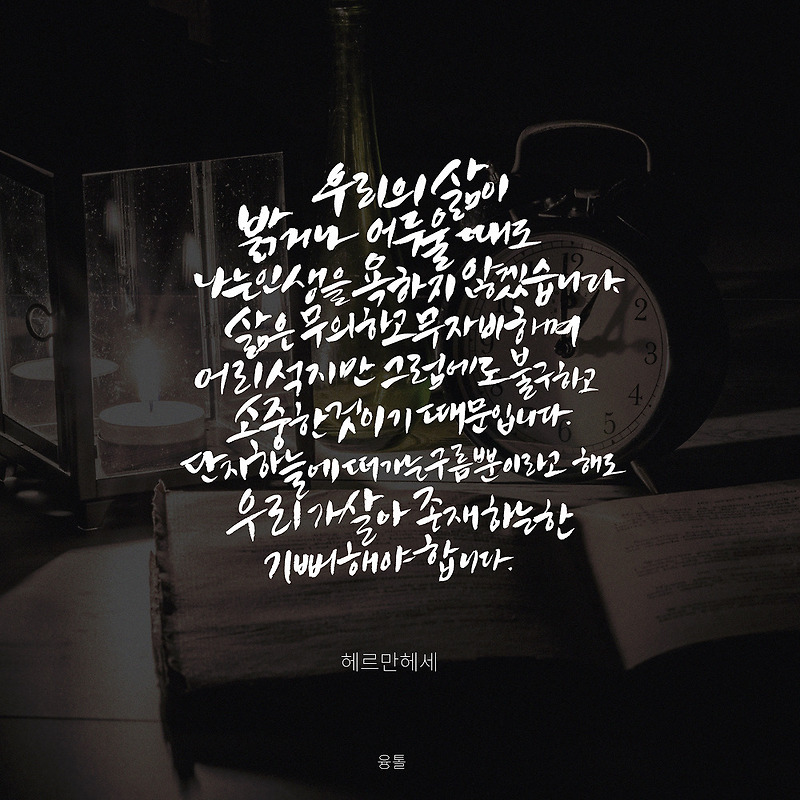 우리의 삶이
밝거나 어두울 때도
나는 인생을 욕하지 않겠습니다.
삶은 무의하고 무자비하며
어리석지만 그럼에도 불구하고
소중한 것이기 때문입니다.
단지 하늘에 떠가는 구름뿐이라고 해도
우리가 살아 존재하는 한
기뻐해야 합니다.
헤르만헤세
융톨
12
1
2
3
4
5
6